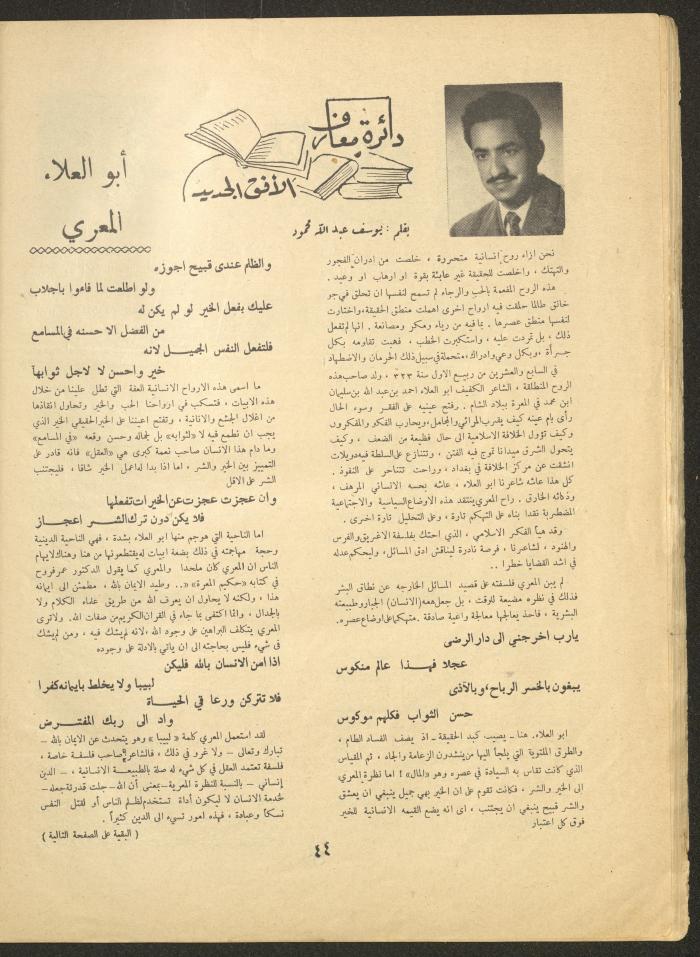 دائرة معارف
الأفق الجديد
أبو العلاء
المعري
بقلم : يوسف عبد الله محمود
نحن ازاء روح انسانية متحررة ، خلصت من ادران الفجور
والتهتك ، واخلصت للحقيقة غير عابئة بقوة او ارهاب او وعيد .
هذه الروح المفعمة بالحب والرجاء لم تسمح لنفسها ان تحلق في جو
خانق طالما حلقت فيه ارواح اخرى اهملت منطق الحقيقة، واختارت
لنفسها منطق عصرها . بما فيه من رياء ومكر ومصانعة . انها لم تفعل
ذلك ، بل تمردت عليه ، واستكبرت الخطب ، فهبت تقاومه بكل
جرأة ، وبكل وعي وادراك، متحملة في سبيل ذلك الحرمان والاضطهاد
في السابع والعشرين من ربيع الاول سنة ٣٢٣ ، ولد صاحب هذه
الروح المنطلقة ، الشاعر الكفيف ابو العلاء احمد بن عبد الله بن سليمان
ابن محمد في المعرة ببلاد الشام . وفتح عينيه على الفقر وسوء الحال
رأى بام عينه كيف يقرب المرائي والمجامل، ويحارب الفكر والمفكرون
وكيف تؤول الخلافة الاسلامية الى حال فظيعة من الضعف ، وكيف
يتحول الشرق ميدانا تموج فيه الفتن ، وتتنازع على السلطة فيه دويلات
انشقت عن مركز الخلافة في بغداد ، وراحت تتناحر على النفوذ .
كل هذا عاشه شاعرنا ابو العلاء ، عاشه بحسه الانساني المرهف ،
وذكائه الخارق . راح المعري ينتقد هذه الاوضاع السياسية والاجتماعية
المضطربة نقدا بناه على التهكم تارة ، وعلى التحليل تارة اخرى .
وقد هيأ الفكر الاسلامي ، الذي احتك بفلسفة الاغريق والفرس
والهنود ، لشاعرنا ، فرصة نادرة ليناقش ادق المسائل، وليحكم عدله
في اشد القضايا خطرا . .
لم يبن المعري فلسفته على قصيد المسائل الخارجه عن نطاق البشر
فذلك في نظره مضيعة للوقت ، بل جعل همه (الانسان) الجبار وطبيعته
البشرية ، فاخذ يعالجها معالجة واعية صادقة . متهكما على اوضاع عصره.
يارب اخرجني الى دار الرضى
عجلا فهذا عالم منكوس
يبغون بالخسر الرباح، وبالأذى
حسن الثواب فكلهم موكوس
ابو العلاء، هنا ـ يصيب كبد الحقيقة ـ اذ يصف الفساد الطام ،
والطرق الملتوية التي يلجأ اليها من ينشدون الزعامة والجاه ، ثم المقياس
الذي كانت تقاس به السيادة في عصره، وهو «المال» ! اما نظرة المعري
الى الخير والشر ، فكانت تقوم على ان الخير بهي جميل ينبغي ان يعشق
والشر قبيح ينبغي ان يجتنب ، اي انه يضع القيمه الانسانية للخير
فوق كل اعتبار
والظلم عندي قبيح اجوزه
ولو اطلعت لما فاءوا باجلاب
عليك بفعل الخير لو لم يكن له
من الفضل الا حسنه في المسامع
فلتفعل النفس الجميل لانه
خير واحسن لا لاجل ثوابها
ما اسمى هذه الارواح الانسانية العفة التي تطل علينا من خلال
هذه الابيات ، فتسكب في ارواحنا الحب والخير وتحاول انقاذها
من اغلال الجشع والانانية ، وتفتح اعيننا على الخير الحقيقي الخير الذي
يجب ان نطمع فيه لا «لثوابه» بل لجماله وحسن وقعه «في المسامع»
وما دام هذا الانسان صاحب نعمة كبرى هي «العقل» فانه قادر على
التمييز بين الخير والشر ، اما اذا بدا له عمل الخير شاقا ، فليجتنب
الشر على الاقل
وان عجزت عجزت عن الخيرات تفعلها
فلا يكن دون ترك الشر اعجاز
اما الناحية التي هوجم منها ابو العلاء بشدة ، فهي الناحية الدينية
وحجة مهاجمته في ذلك بضعة ابيات له يقتطعونها من هنا وهناك لايهام
الناس ان المعري كان ملحدا والمعري كما يقول الدكتور عمر فروخ
في كتابه «حكيم المعرة» «.. وطيد الايمان بالله ، مطمئن الى ايمانه
هذا ، ولكنه لا يحاول ان يعرف الله من طريق علماء الكلام ولا
بالجدال ، وانما اكتفى بما جاء في القران الكريم من صفات الله. ولا ترى
المعري يتكلف البراهين على وجود الله ،لانه لم يشك فيه ، ومن لم يشك
في شيء فليس بحاجته الى ان ياتي بالادلة على وجوده
اذا امن الانسان بالله فليكن
لبيبا ولا يخلط بايمانه كفرا
فلا تتركن ورعا في الحياة
واد الى ربك المفترض
لقد استعمل المعري كلمة « لبيبا » وهو يتحدث عن الايمان بالله ـ
تبارك وتعالى ـ ولا غرو في ذلك ، فالشاعر صاحب فلسفة خاصة ،
فلسفة تعتمد العقل في كل شيء له صلة بالطبيعة الانسانية ، ـ الدين
إنساني ـ بالنسبة للنظرة المعرية ـ بمعنى أن الله ـ جلت قدرته جعله ـ
لخدمة الانسان لا ليكون أداة تستخدم لظلم الناس أو لقتل النفس
نسكاً وعبادة ، فهذه امور تسيء الى الدين كثيراً .
( البقية على الصفحة التالية )
٤٤